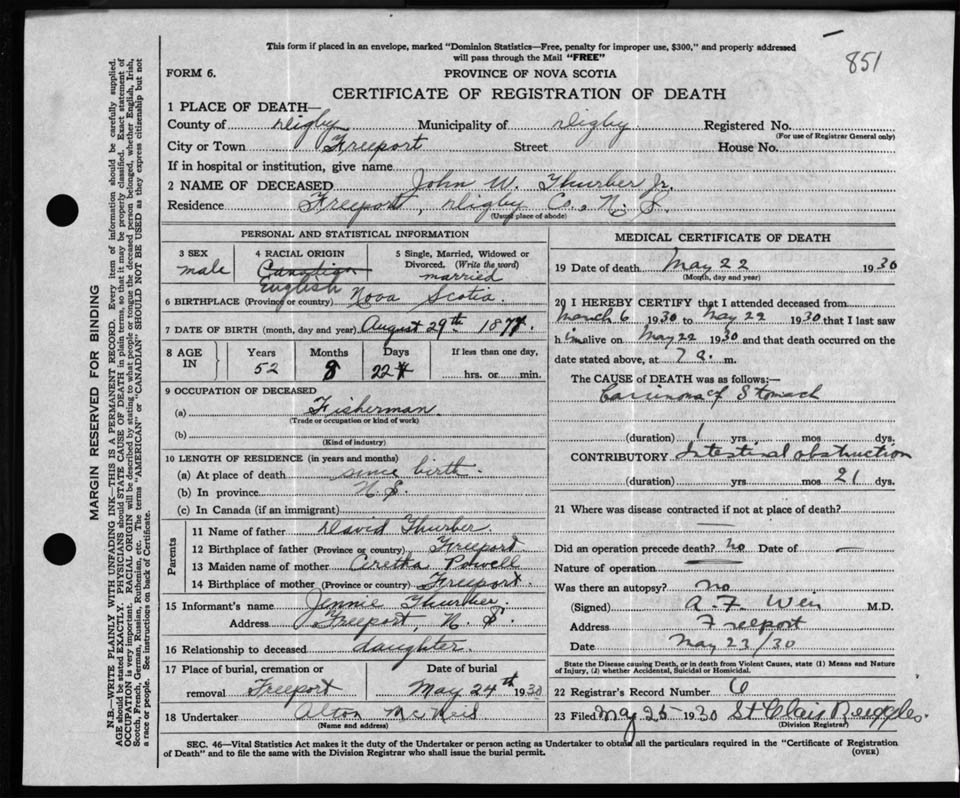 This form if placed in an envelope, marked "Dominion Statistics—Free, penalty for improper use, $300," and properly addressed
will pass through the Mail "FREE"
851
FORM 6.
PROVINCE OF NOVA SCOTIA
CERTIFICATE OF REGISTRATION OF DEATH
1 PLACE OF DEATH—
County of Digby Municipality of Digby Registered No.
(For use of Registrar General only)
City or Town Freeport Street House No.
If in hospital or institution, give name
2 NAME OF DECEASED John W. Thurber Jr.
Residence Freeport, Digby Co., N. S.
(Usual place of abode)
PERSONAL AND STATISTICAL INFORMATION
3 SEX
male
4 RACIAL ORIGIN
Canadian
English
5 Single, Married, Widowed or
Divorced. (Write the word)
married
6 BIRTHPLACE (Province or country) Nova Scotia.
7 DATE OF BIRTH (month, day and year) August 29th 1877.
8 AGE
IN
Years
52
Months
8
Days
22
If less than one day,
hrs. or min.
9 OCCUPATION OF DECEASED
(a) Fisherman
(Trade or occupation or kind of work)
(b)
(Kind of industry)
10 LENGTH OF RESIDENCE (in years and months)
(a) At place of death since birth.
(b) In province N. S.
(c) In Canada (if an immigrant)
Parents
11 Name of father David Thurber.
12 Birthplace of father (Province or country) Freeport
13 Maiden name of mother Aretha Powell
14 Birthplace of mother (Province or country) Freeport.
15 Informant's name Jennie Thurber.
Address Freeport, N. S.
16 Relationship to deceased daughter.
17 Place of burial, cremation or
removal Freeport
Date of burial
May 24th 1930
18 Undertaker Alton McNeil
(Name and address)
MEDICAL CERTIFICATE OF DEATH
19 Date of death May 22 1930
(Month, day and year)
20 I HEREBY CERTIFY that I attended deceased from
March 6 1930 to May 22 1930 that I last saw
him alive on May 22 1930 and that death occurred on the
date stated above, at 7 a. m.
The CAUSE of DEATH was as follows:—
Carcinoma of Stomach
(duration) 1 yrs. mos. dys.
CONTRIBUTORY Intestinal obstruction
(duration) yrs. mos. 21 dys.
21 Where was disease contracted if not at place of death?
—
Did an operation precede death? no Date of —
Nature of operation
Was there an autopsy? no
(Signed) A. F. Weir M.D.
Address Freeport
Date May 23/30
State the Disease causing Death, or in death from Violent Causes, state (1) Means and Nature
of Injury, (2) whether Accidental, Suicidal or Homicidal.
22 Registrar's Record Number 6
23 Filed May 25 1930 St Clair Ruggles.
(Division Registrar)
SEC. 46—Vital Statistics Act makes it the duty of the Undertaker or person acting as Undertaker to obtain all the particulars required in the "Certificate of Registration
of Death" and to file the same with the Division Registrar who shall issue the burial permit.
(OVER)
MARGIN RESERVED FOR BINDING
N.B.—WRITE PLAINLY WITH UNFADING INK—THIS IS A PERMANENT RECORD. Every item of information should be carefully supplied.
AGE should be stated EXACTLY. PHYSICIANS should STATE CAUSE OF DEATH in plain terms, so that it may be properly classified. Exact statement of
OCCUPATION is very important. RACIAL ORIGIN will be described by stating to what people or tongue the deceased person belonged, whether English, Irish,
Scotch, French, German, Russian, Ruthenian, etc. The terms "AMERICAN" or "CANADIAN" SHOULD NOT BE USED as they express citizenship but not
a race or people. See instructions on back of Certificate.